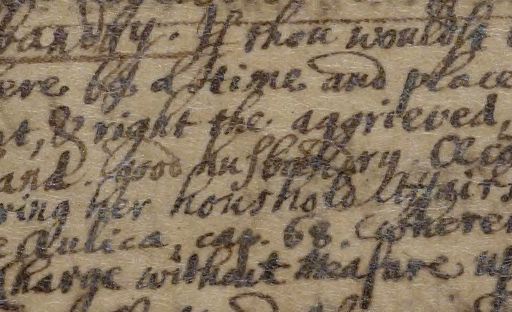 bandry. If thou wouldst
ere by a time and place
t, & right the aggrieved,
and good husbandry.
ring her houshold affairs
Aulica, cap. 68. wherein
Charge without measure